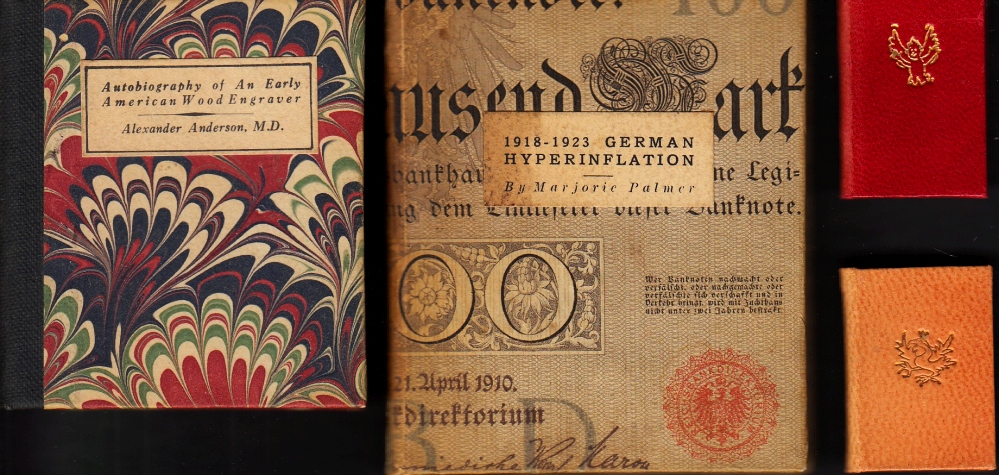 Autobiography of An Early
American Wood Engraver
Alexander Anderson, M.D.
banknote. 100
ausend Mark
1918-1923 GERMAN
HYPERINFLATION
By Marjorie Palmer
ne Legi=
ng dem Einlieferer dieser Banknote.
00
Wer Banknoten nachmacht oder
verfälscht, oder nachgemachte oder
verfälschte sich verschafft und in
Verkehr bringt, wird mit Zuchthaus
nicht unter zwei Jahren bestraft.
21. April 1910.
kdirektorium